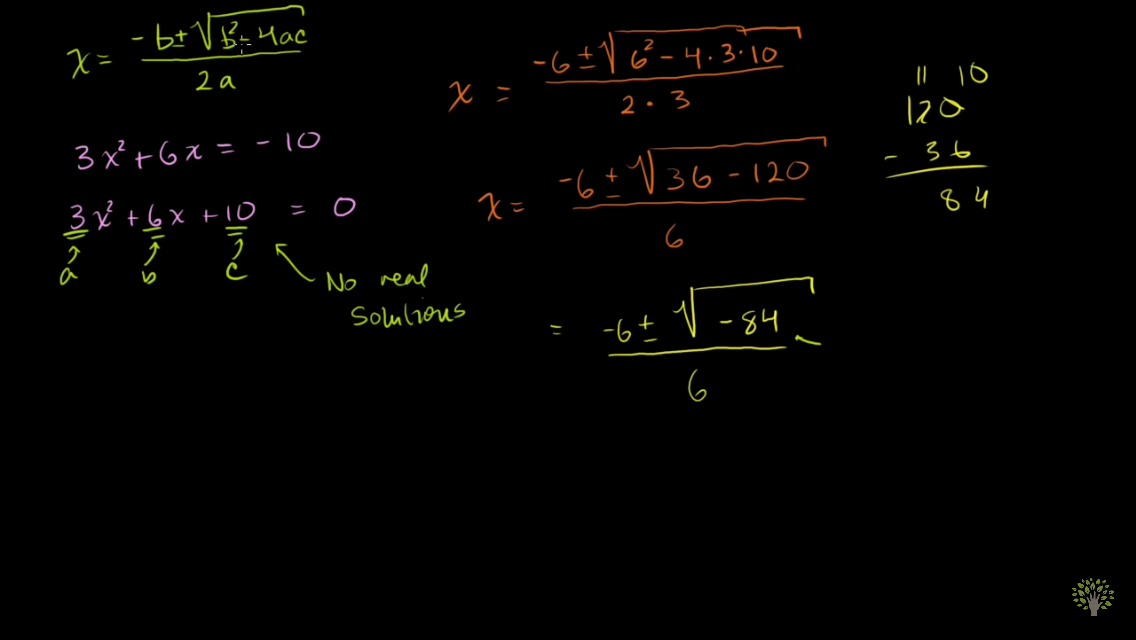 x = (-b ± √(b² - 4ac)) / 2a
3x² + 6x = -10
3x² + 6x + 10 = 0
a b c
No real
solutions
x = (-6 ± √(6² - 4 · 3 · 10)) / (2 · 3)
x = (-6 ± √(36 - 120)) / 6
= (-6 ± √(-84)) / 6
11 10
120
- 36
84